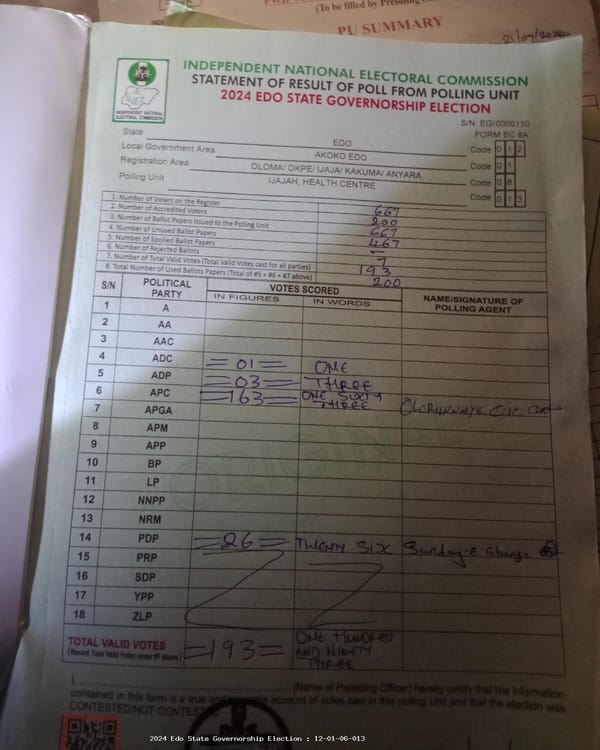 (To be filled by Presiding
PU SUMMARY
21/09/2024
INDEPENDENT NATIONAL ELECTORAL COMMISSION
STATEMENT OF RESULT OF POLL FROM POLLING UNIT
2024 EDO STATE GOVERNORSHIP ELECTION
INDEPENDENT NATIONAL
ELECTORAL COMMISSION
S/N: EG/0000130
FORM EC 8A
State EDO
Local Government Area AKOKO EDO Code 0 1 2
Registration Area OLOMA/ OKPE/ IJAJA/ KAKUMA/ ANYARA Code 0 1
Polling Unit IJAJAH, HEALTH CENTRE Code 0 6
Code 0 1 3
1. Number of Voters on the Register 667
2. Number of Accredited Voters 200
3. Number of Ballot Papers Issued to the Polling Unit 667
4. Number of Unused Ballot Papers 467
5. Number of Spoiled Ballot Papers –
6. Number of Rejected Ballots 7
7. Number of Total Valid Votes (Total Valid Votes cast for all parties) 193
8. Total Number of Used Ballots Papers (Total of #5 + #6 + #7 above) 200
S/N POLITICAL PARTY VOTES SCORED NAME/SIGNATURE OF POLLING AGENT
IN FIGURES IN WORDS
1 A
2 AA
3 AAC
4 ADC = 01 = ONE
5 ADP = 03 = THREE
6 APC = 163 = ONE SIXTY THREE
7 APGA
8 APM
9 APP
10 BP
11 LP
12 NNPP
13 NRM
14 PDP = 26 = TWENTY SIX Sunday
15 PRP
16 SDP
17 YPP
18 ZLP
TOTAL VALID VOTES = 193 = ONE HUNDRED AND NINETY THREE
(Record Total Valid Votes under #7 above)
I, (Name of Presiding Officer) hereby certify that the information
contained in this form is a true and account of votes cast in this polling Unit and that the election was
CONTESTED/NOT CONTESTED
2024 Edo State Governorship Election : 12-01-06-013